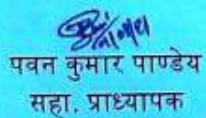 पवन कुमार पाण्डेय
सहा. प्राध्यापक